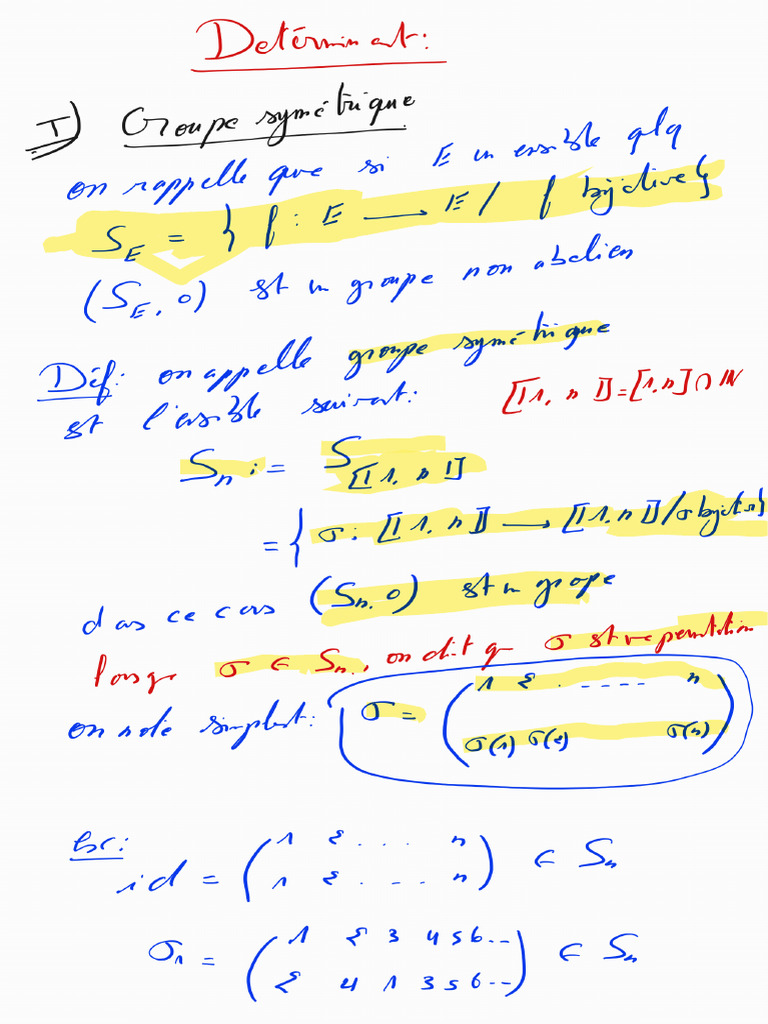 Determinant:
I) Groupe symétrique
on rappelle que si E un ensible qlq
S_E = { f : E ⟶ E / f bijective }
(S_E, o) est un groupe non abelien
Déf: on appelle groupe symétrique
est l'ensible suivant: ⟦1, n⟧ = [1, n] ∩ ℕ
S_n := S_⟦1, n⟧
= { σ : ⟦1, n⟧ ⟶ ⟦1, n⟧ / σ bijective }
das ce cas (S_n, o) est un grope
lorsqe σ ∈ S_n, on dit que σ est une permutation
on note simplmt: σ = ( 1 2 . - - - - n
σ(1) σ(2) σ(n) )
Ex:
id = ( 1 2 . . . n
1 2 . - - . n ) ∈ S_n
σ_1 = ( 1 2 3 4 5 6 . . -
2 4 1 3 5 6 - - ) ∈ S_n